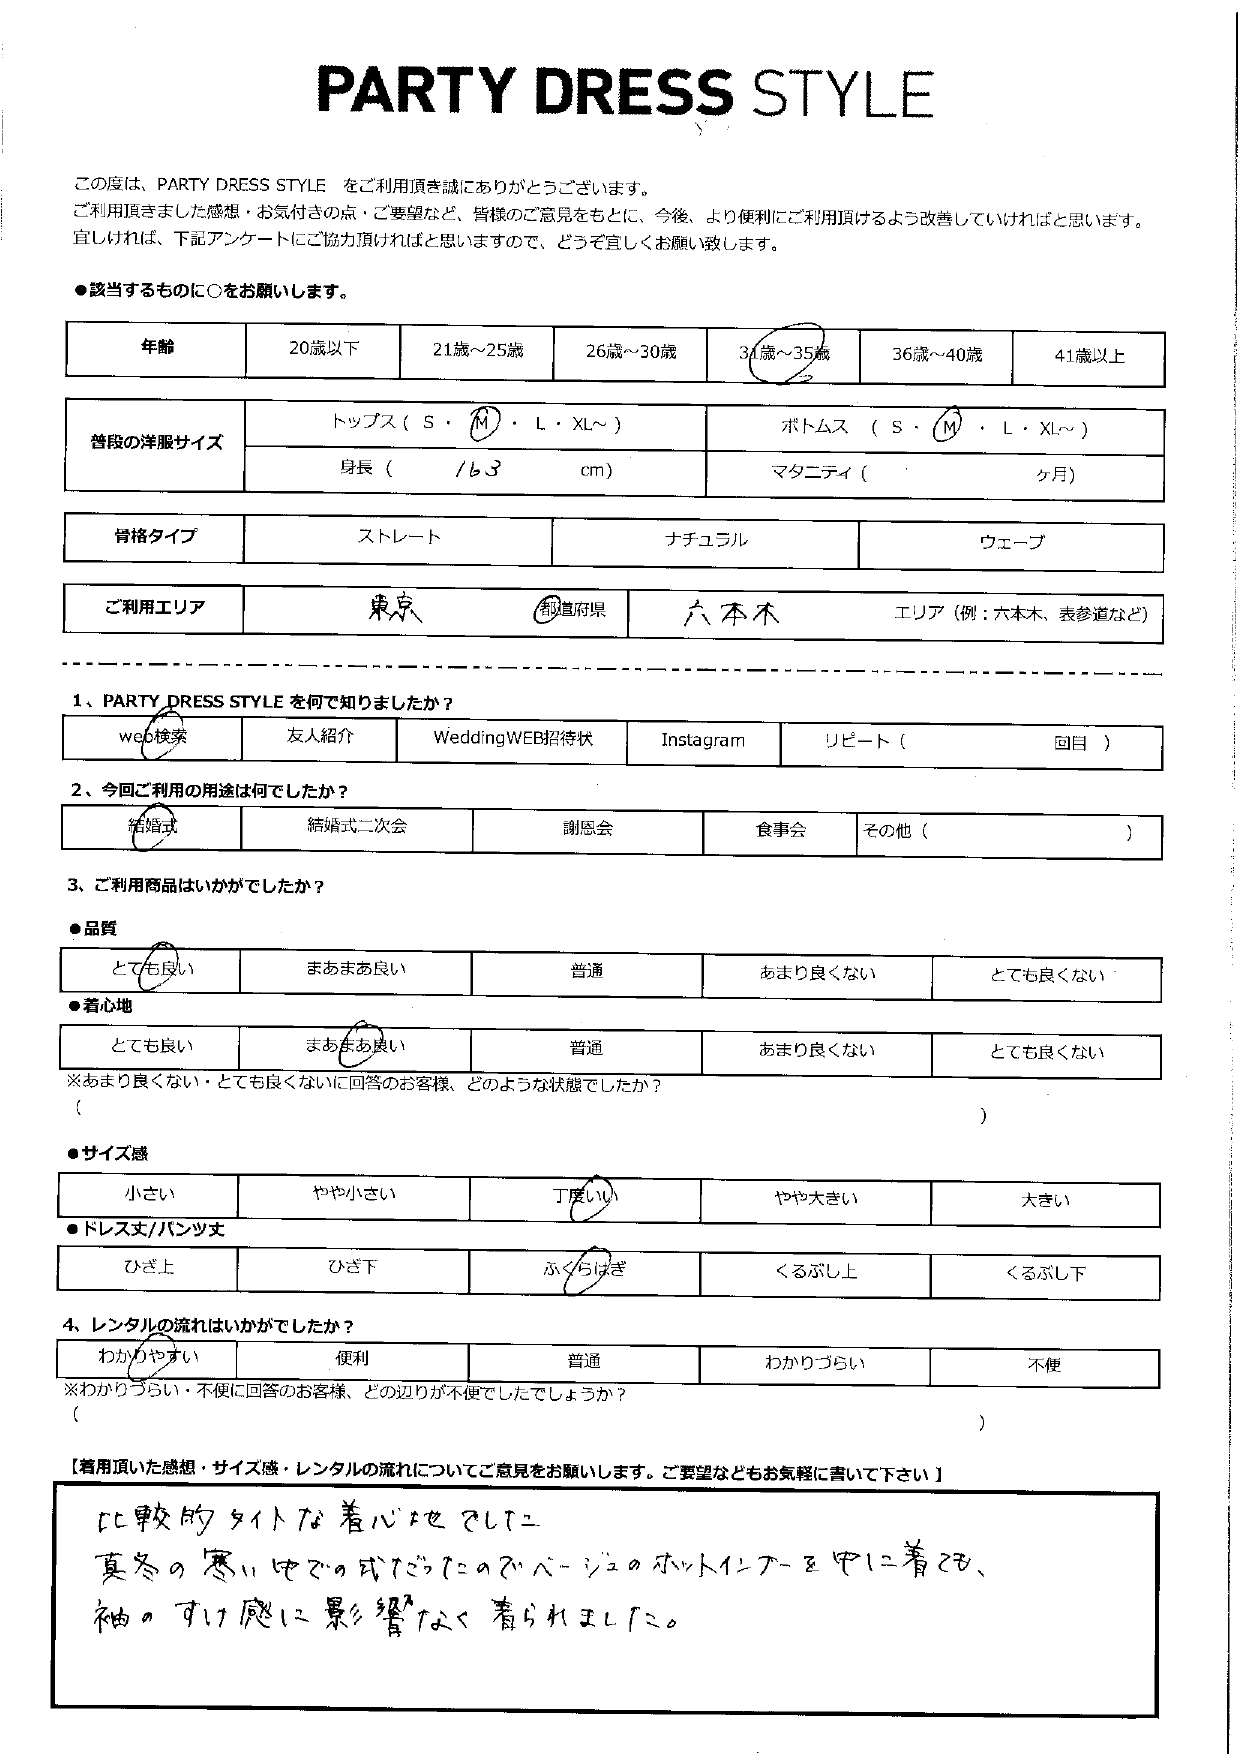 PARTY DRESS STYLE
この度は、PARTY DRESS STYLE をご利用頂き誠にありがとうございます。
ご利用頂きました感想・お気付きの点・ご要望など、皆様のご意見をもとに、今後、より便利にご利用頂けるよう改善していければと思います。
宜しければ、下記アンケートにご協力頂ければと思いますので、どうぞ宜しくお願い致します。
●該当するものに○をお願いします。
年齢 20歳以下 21歳～25歳 26歳～30歳 31歳～35歳 36歳～40歳 41歳以上
普段の洋服サイズ トップス ( S ・ M ・ L ・ XL～ ) ボトムス ( S ・ M ・ L ・ XL～ )
身長 ( 163 cm) マタニティ ( ケ月)
骨格タイプ ストレート ナチュラル ウェーブ
ご利用エリア 東京 都道府県 六本木 エリア (例：六本木、表参道など)
1、PARTY DRESS STYLE を何で知りましたか？
web検索 友人紹介 WeddingWEB招待状 Instagram リピート ( 回目 )
2、今回ご利用の用途は何でしたか？
結婚式 結婚式二次会 謝恩会 食事会 その他 ( )
3、ご利用商品はいかがでしたか？
●品質
とても良い まあまあ良い 普通 あまり良くない とても良くない
●着心地
とても良い まあまあ良い 普通 あまり良くない とても良くない
※あまり良くない・とても良くないに回答のお客様、どのような状態でしたか？
( )
●サイズ感
小さい やや小さい 丁度いい やや大きい 大きい
●ドレス丈/パンツ丈
ひざ上 ひざ下 ふくらはぎ くるぶし上 くるぶし下
4、レンタルの流れはいかがでしたか？
わかりやすい 便利 普通 わかりづらい 不便
※わかりづらい・不便に回答のお客様、どの辺りが不便でしたでしょうか？
( )
【着用頂いた感想・サイズ感・レンタルの流れについてご意見をお願いします。ご要望などもお気軽に書いて下さい 】
比較的タイトな着心地でした
真冬の寒い中での式だったのでベージュのホットインナーを中に着ても、
袖のすけ感に影響なく着られました。